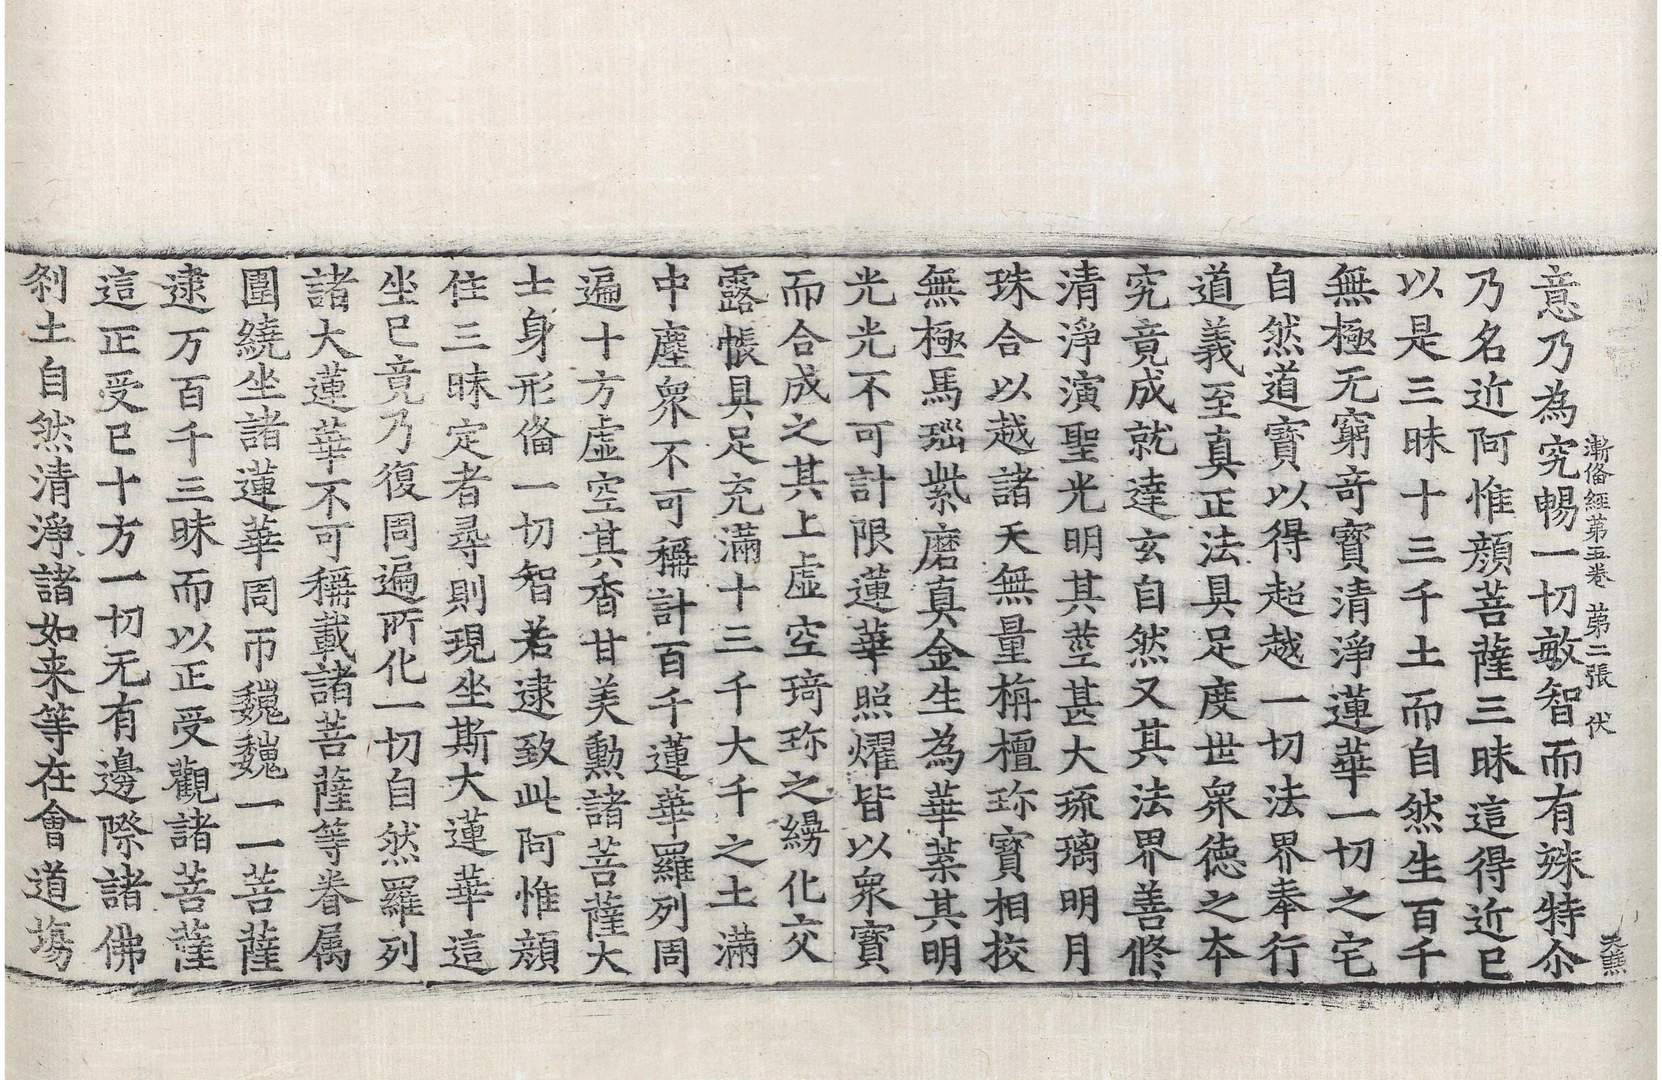 漸俻經第五卷 第二張 伏
意乃為究暢一切敏智而有殊特尒
乃名近阿惟顔菩薩三昧這得近已
以是三昧十三千土而自然生百千
無極无窮竒寳清淨蓮華一切之宅
自然道寳以得超越一切法界奉行
道義至真正法具足度世衆徳之夲
究竟成就達玄自然又其法界善修
清淨演聖光明其莖甚大琉璃明月
珠合以越諸天無量栴檀珎寳相挍
無極馬瑙紫磨真金生為華葉其明
光光不可計限蓮華照燿皆以衆寳
而合成之其上虚空琦珎之縵化交
露帳具足充滿十三千大千之土滿
中塵衆不可稱計百千蓮華羅列周
遍十方虚空其香甘美勲諸菩薩大
士身形俻一切智若逮致此阿惟顔
住三昧定者尋則現坐斯大蓮華這
坐已竟乃復周遍所化一切自然羅列
諸大蓮華不可稱載諸菩薩等眷属
圍繞坐諸蓮華周帀巍巍一一菩薩
逮万百千三昧而以正受觀諸菩薩
這正受已十方一切无有邊際諸佛
刹土自然清淨諸如来等在會道塲